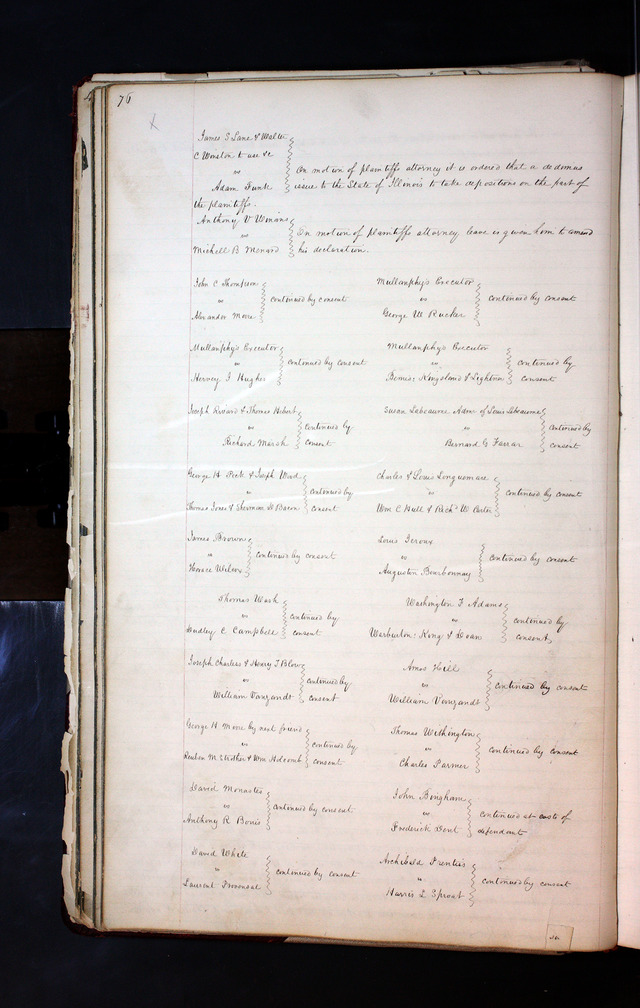 76
James S Lane & Walter
C Winston to use &c
vs
Adam Funk
On motion of plaintiffs attorney it is ordered that a dedimus
issue to the State of Illinois to take depositions on the part of
the plaintiffs.
Anthony V Winans
vs
Michell B Menard
On motion of plaintiffs attorney leave is given him to amend
his declaration.
John C Thompson
vs
Alexander More
continued by consent
Mullanphy's Executor
vs
George W Rucker
continued by consent
Mullanphy's Executor
vs
Hervey I Hughes
continued by consent
Mullanphy's Executor
vs
Bemis Kingsland & Lightner
continued by
consent
Joseph & Thomas Hebert
vs
Richard Marsh
continued by
consent
Susan Labeaume Admx of Louis Labeaume
vs
Bernard G Farrar
continued by
consent
George H Peck & Joseph Wood
vs
Thomas Jones & Sherman H Bacon
continued by
consent
Charles & Louis Longuemare
vs
Wm C Hull & Richd W Carter
continued by consent
James Brown
vs
Horace Wilcox
continued by consent
Louis Giroux
vs
Augustin Bourbonnay
continued by consent
Thomas Wash
vs
Hudley C Campbell
continued by
consent
Washington F Adams
vs
Warburton King & Doan
continued by
consent
Joseph Charless & Henry T Blow
vs
William Vanzandt
continued by
consent
Amos Hill
vs
William Vanzandt
continued by consent
George H Moore by next friend
vs
Reuben M Strother & Wm Holcomb
continued by
consent
Thomas Withington
vs
Charles Farmer
continued by consent
David Monastes
vs
Anthony R Bouis
continued by consent
John Bingham
vs
Frederick Dent
continued at costs of
defendant
David White
vs
Laurent Provensal
continued by consent
Archibald Prentiss
vs
Harris L Sprout
continued by consent